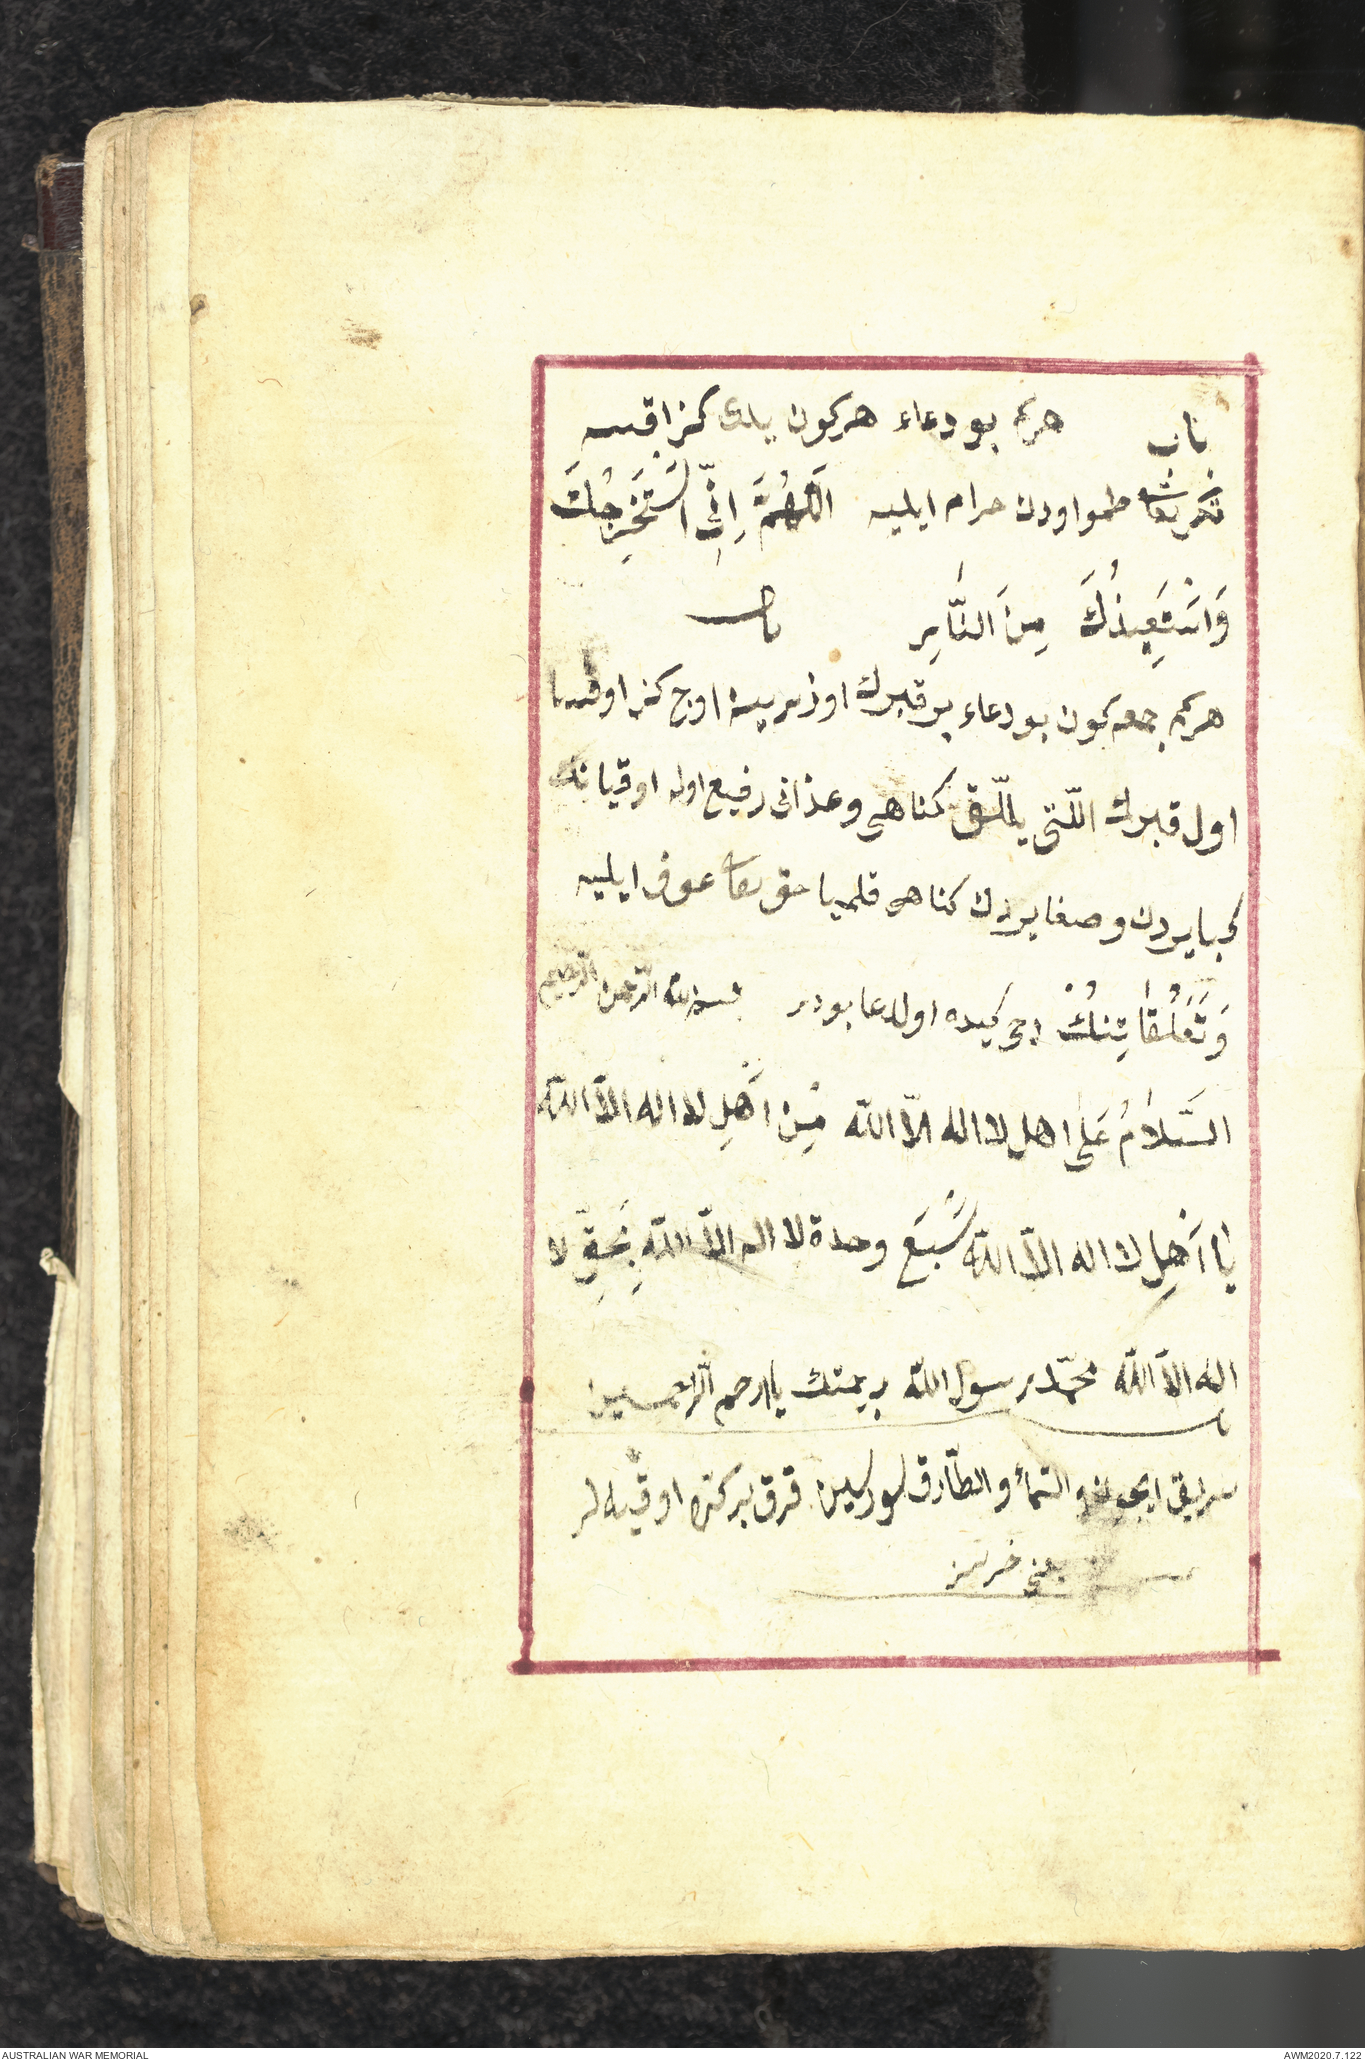 باب هركم بو دعاء هر كون يدى كز اقسه
تكرى تعا طمو اودن حرام ايليه اَللّٰهُمَّ اِنِّى اَسْتَخِيرُكَ
وَاَسْتَعِيذُكَ مِنَ النَّارِ باب
هركم جمعه كون بو دعاء بر قبرك اوزرينه اوج كز اوقسا
اول قبرك اللتى يللق كناهى وعذابى رفيع اوله اوقيانك
كبايردن وصغايردن كناهى قلميا حق تعا عوف ايليه
دخى كيده اول دعا بودر بسم الله الرّحمن الرّحيم
السَّلَامُ عَلى اهل لا اله الاّ الله مِنْ اَهْلِ لا اله الاّ الله
يَا اَهْلِ لا اله الاّ الله وحدة لا اله الاّ اللهِ بِحَقِّ لا
اله الاّ الله محمّد رسول الله برحمتك يا ارحم الرّاحمين
والسّمآء والطّارق سورسين قرق بر كره اوقيه لر
يعنى
AUSTRALIAN WAR MEMORIAL
AWM2020.7.122